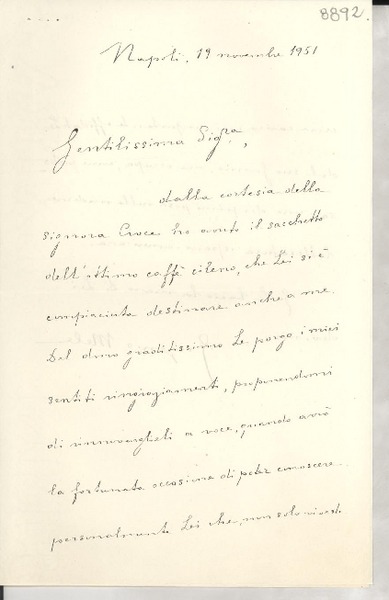 8892.
Napoli, 19 novembre 1951
Gentilissima Sig.ra,
dalla cortesia della
signora Croce ho avuto il sacchetto
dell'ottimo caffè cileno, che Lei si è
compiaciuta destinare anche a me.
Del dono graditissimo Le porgo i miei
sentiti ringraziamenti, proponendomi
di rinnovarglieli a voce, quando avrò
la fortunata occasione di poter conoscere
personalmente Lei che, non solo